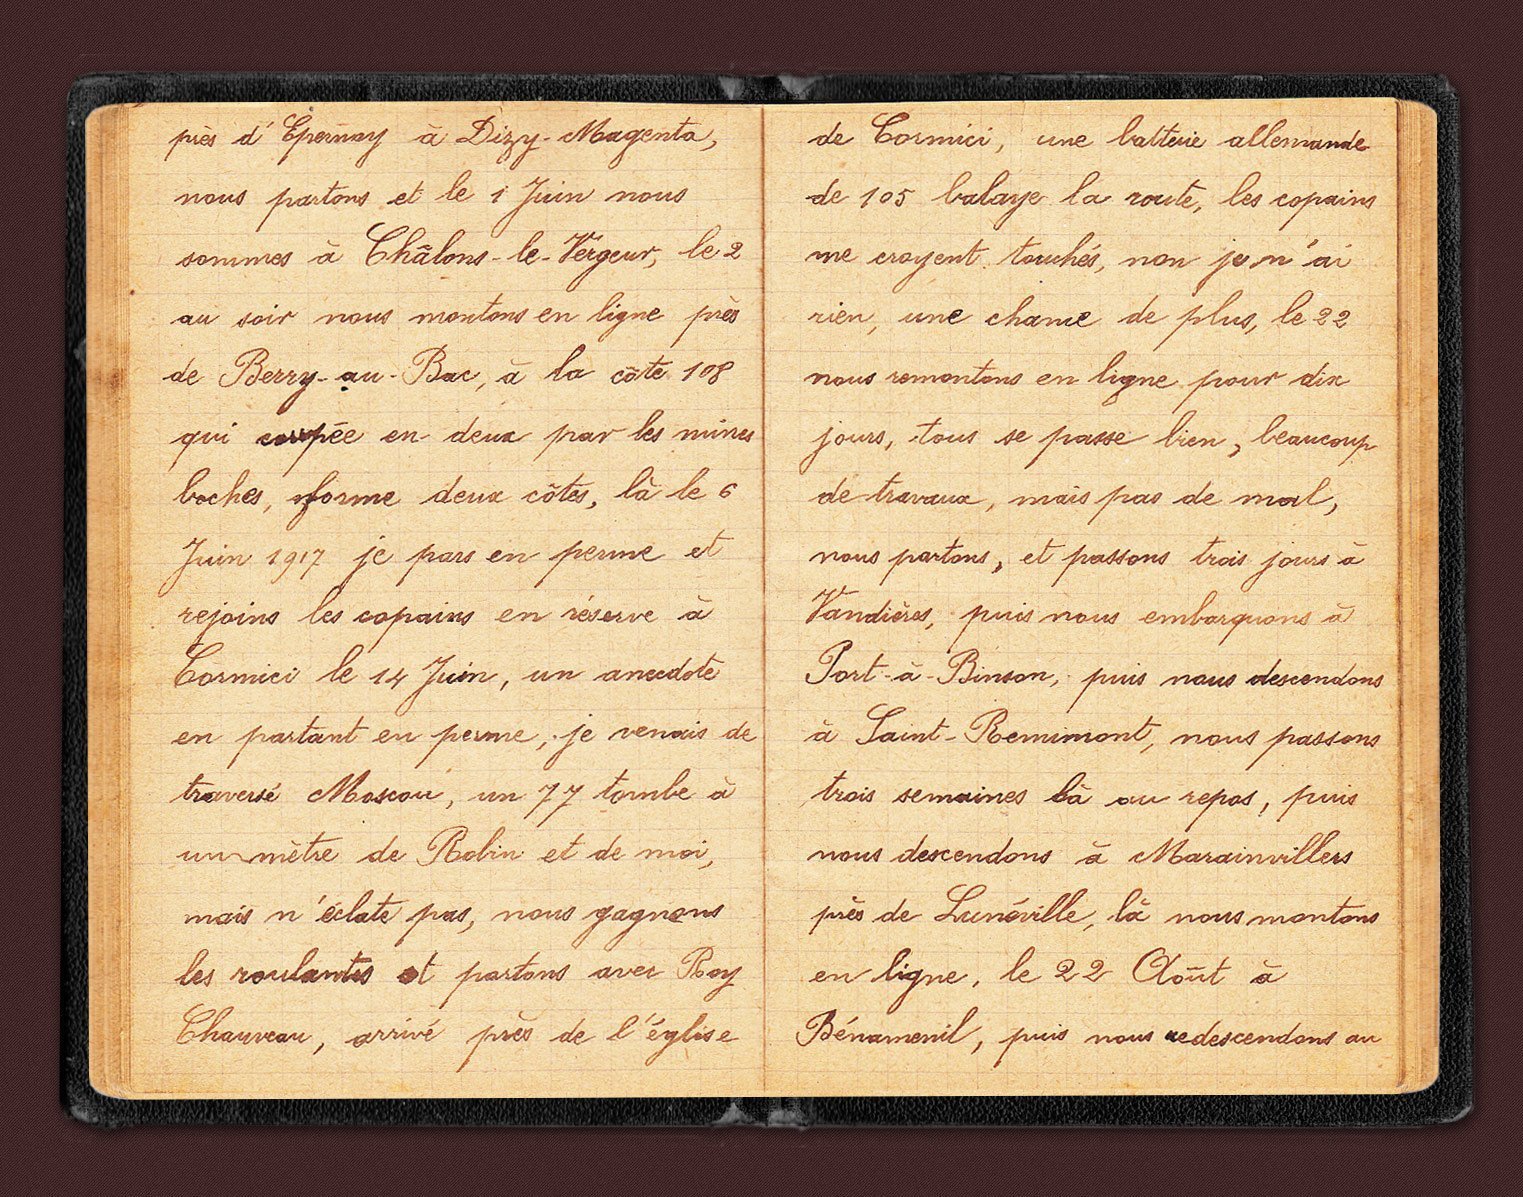 près d'Epernay à Dizy-Magenta,
nous partons et le 1 Juin nous
sommes à Châlons-le-Vergeur, le 2
au soir nous montons en ligne près
de Berry-au-Bac, à la côte 108
qui coupée en deux par les mines
boches, forme deux côtes, là le 6
Juin 1917 je pars en perme et
rejoins les copains en réserve à
Cormici le 14 Juin, un anecdote
en partant en perme, je venais de
traversé Moscou, un 77 tombe à
un mètre de Robin et de moi,
mais n'éclate pas, nous gagnons
les roulantes et partons avec Roy
Chauveau, arrivé près de l'église
de Cormici, une batterie allemande
de 105 balaye la route, les copains
me croyent touchés, non je n'ai
rien, une chance de plus, le 22
nous remontons en ligne pour dix
jours, tous se passe bien, beaucoup
de travaux, mais pas de mal,
nous partons, et passons trois jours à
Vandières, puis nous embarquons à
Port-à-Binson, puis nous descendons
à Saint-Remimont, nous passons
trois semaines là au repos, puis
nous descendons à Marainvillers
près de Lunéville, là nous montons
en ligne, le 22 Août à
Bénamenil, puis nous redescendons au